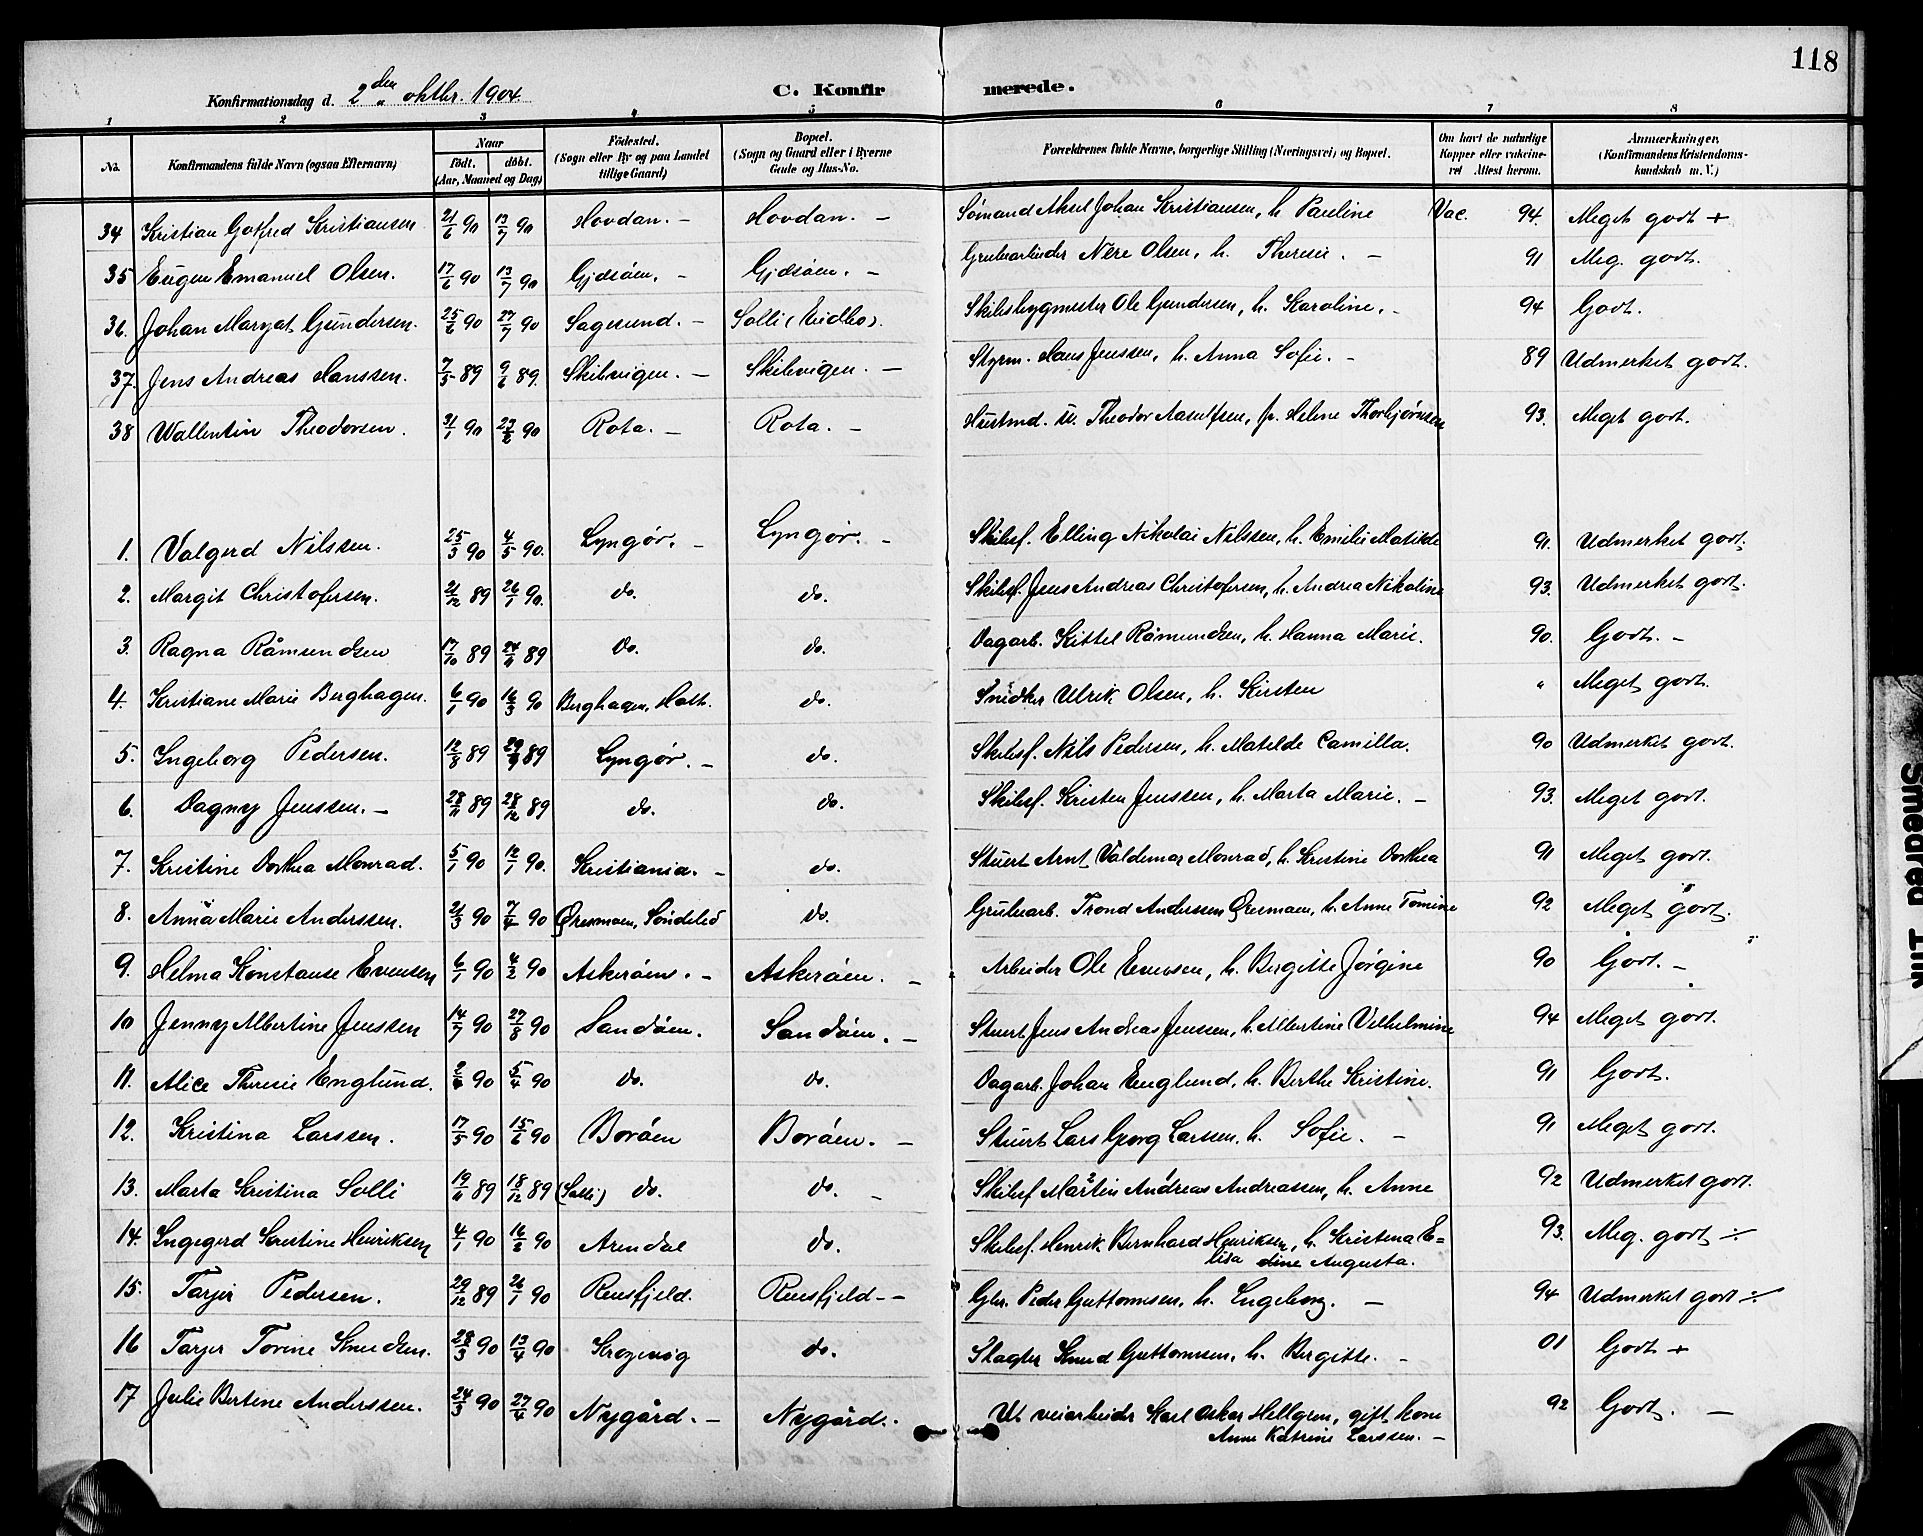 118
Konfirmationsdag d. 2den oktbr. 1904 C. Konfirmerede.
1 2 3 4 5 6 7 8
No. Konfirmandens fulde Navn (ogsaa Efternavn) Naar født, døbt. (Aar, Maaned og Dag) Fødested. (Sogn eller By og paa Landet tillige Gaard) Bopæl. (Sogn og Gaard eller i Byerne Gade og Hus-No. Forældrenes fulde Navne, borgerlige Stilling (Næringsvei) og Bopæl. Om havt de naturlige Kopper eller vakcineret Attest herom. Anmærkninger, (Konfirmandens Kristendomskundskab m. V.)
34 Kristian Gotfred Kristiansen 21/6 90 13/7 90 Hovdan. - Hovdan. - Sømand Aksel Johan Kristiansen, h. Pauline Vac. 94. Meget godt +
35 Eugen Emanuel Olsen. 17/6 90 13/7 90 Gjdsøen. - Gjdsøen. - Grubearbeider Nere Olsen, h. Therese. - 91 Meg. godt.
36. Johan Margat Gundersen. 25/6 90 27/7 90 Sagesund. - Solli Skibsbygmester Ole Gundersen, h. Karoline. - 94 Godt.
37. Jens Andreas Hanssen. 7/5 89 9/6 89. Skibvigen. - Skibvigen. - Styrm. Hans Jenssen, h. Anna Sofie. - 89 Udmerket godt.
38 Wallentin Theodorsen. 31/1 90 90 Rota. - Rota. - Hustmd. u. Theodor h. Helene Thorbjørnsen 93. Meget godt.
1. Valgerd Nilssen. 25/3 90 4/5 90. Lyngør. - Lyngør. - Skibsf. Elling Nikolai Nilssen, h. Emilie Matilde 91. Udmerket godt.
2. Margit Christofersen. 21/12 89 26/1 90. do. do. Skibsf. Jens Andreas Christofersen, h. Andrea Nikoline 93. Udmerket godt.
3. Ragna Råmundsen 17/10 89 24/11 89 do. do. Dagarb. Kittel Råmundsen, h. Hanna Marie. 90. Godt. -
4. Kristiane Marie Berghagen. 6/1 90 16/3 90 Berghagen, Holt. do. Snidker Ulrik Olsen, h. Kirsten " Meget godt.
5. Ingeborg Pedersen. 12/8 89 29/9 89 Lyngør. - do. Skibsf. Nils Pedersen, h. Matilde Camilla. 90 Udmerket godt.
6. Dagny Jenssen. - 28/11 89 28/12 89 do. do. Skibsf. Kristen Jenssen, h. Marta Marie. - 93. Meget godt.
7. Kristine Dorthea Monrad. 5/1 90 12/1 90. Kristiania. - do. Stuert Arnt Valdemar Monrad, h. Kristine Dorthea 91 Meget godt.
8. Anna Marie Anderssen. 21/3 90 7/4 90 Øresmoen, Søndeled do. Grubearb. Trond Anderssen Øresmoen, h. Anne Tomine 92 Meget godt.
9. Helma Konstanse Evensen 6/1 90 4/2 90 Askerøen. - Askerøen. - Arbeider Ole Evensen, h. Bergitte Jørgine 90 Godt. -
10 Jenny Albertine Jenssen 14/7 90 27/8 90 Sandøen. Sandøen. - Stuert Jens Andreas Jenssen, h. Albertine Vilhelmine 94 Meget godt.
11. Alice Therese Englund. 90 5/4 90 do. do. Dagarb. Johan Englund, h. Berthe Kristine. 91 Godt.
12. Kristina Larssen. 17/5 90 15/6 90 Borøen Borøen. - Stuert Lars Georg Larssen, h. Sofie. - 91 Meget godt.
13. Marta Kristina Solli 89 18/12 89 (Solli) do. do. - Skibsf. Martin Andreas Andreassen, h. Anne 92 Udmerket godt.
14. Ingegerd Kristine Henriksen 4/1 90 16/2 90 Arendal do. Skibsf. Henrik Bernhard Henriksen, h. Kristena E=
lisa dine Augusta. 93. Meg. godt ÷
15. Tarjer Pedersen. 29/12 89 26/1 90 Rensfjeld. Rensfjeld - - Gbr. Peder Guttormsen, h. Ingeborg. - 94 Udmerket godt ÷
16 Tarjer Torine Knudsen. 28/3 90 13/4 90 Krogevåg do. Slagter Knud Guttormsen, h. Bergitte. - 01 Godt +
17 Julie Bertine Anderssen. 24/3 90 27/4 90 Nygård. - Nygård. Ut veiarbeider Karl Oskar Hellgren, gift kone
Anne Katrine Larssen. - 92 Godt. -